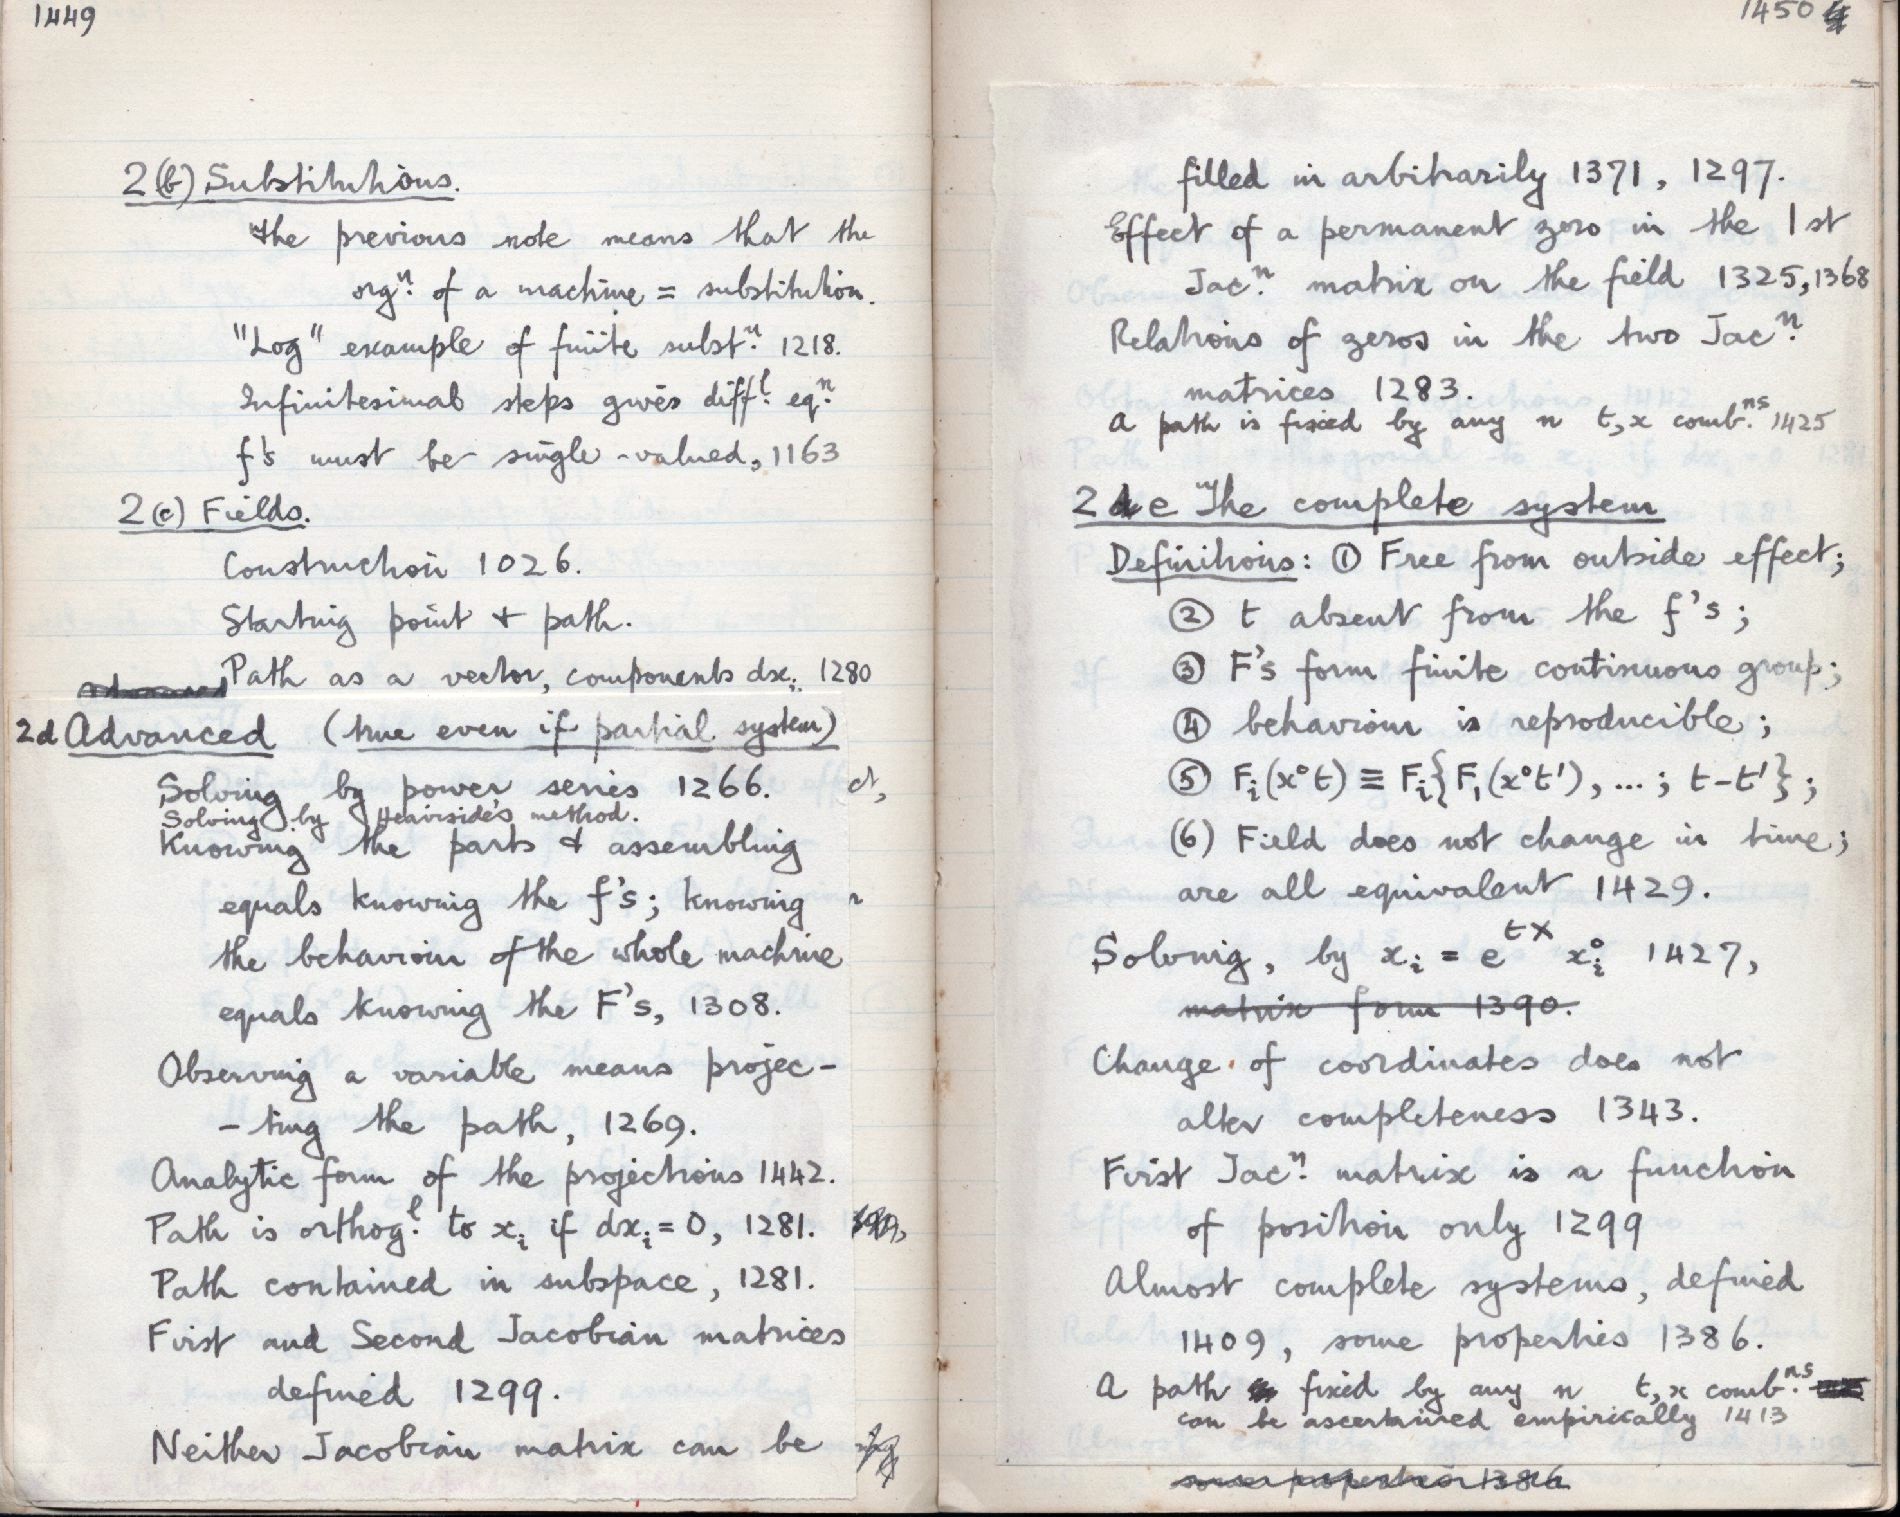 1449
2(b) Substitutions.
The previous note means that the
orgⁿ. of a machine = substitution.
"Log" example of finite substⁿ. 1218.
Infinitesimal steps gives diffˡ. eqⁿ.
f's must be single-valued, 1163
2(c) Fields.
Construction 1026.
Starting point & path.
Path as a vector, components dxᵢ. 1280
2d Advanced (true even if partial system)
Solving by power series 1266.
Solving by Heaviside's method.
Knowing the parts & assembling
equals knowing the f's; knowing
the behaviour of the whole machine
equals knowing the F's, 1308.
Observing a variable means projec-
-ting the path, 1269.
Analytic form of the projections 1442.
Path is orthogˡ. to xᵢ if dxᵢ = 0, 1281.
Path contained in subspace, 1281.
First and Second Jacobian matrices
defined 1299.
Neither Jacobian matrix can be
1450
filled in arbitrarily 1371, 1297.
Effect of a permanent zero in the 1st
Jacⁿ. matrix on the field 1325, 1368
Relations of zeros in the two Jacⁿ.
matrices 1283.
A path is fixed by any n t,x combⁿˢ. 1425
2 e The complete system
Definitions: ① Free from outside effect;
② t absent from the f's;
③ F's form finite continuous group;
④ behaviour is reproducible;
⑤ Fᵢ(x°t) ≡ Fᵢ{F₁(x°t'), ...; t-t'};
(6) Field does not change in time;
are all equivalent 1429.
Solving, by xᵢ = e^tX xᵢ° 1427,
matrix form 1390.
Change of coordinates does not
alter completeness 1343.
First Jacⁿ. matrix is a function
of position only 1299
Almost complete systems, defined
1409, some properties 1386.
A path fixed by any n t,x combⁿˢ.
can be ascertained empirically 1413
some properties 1386